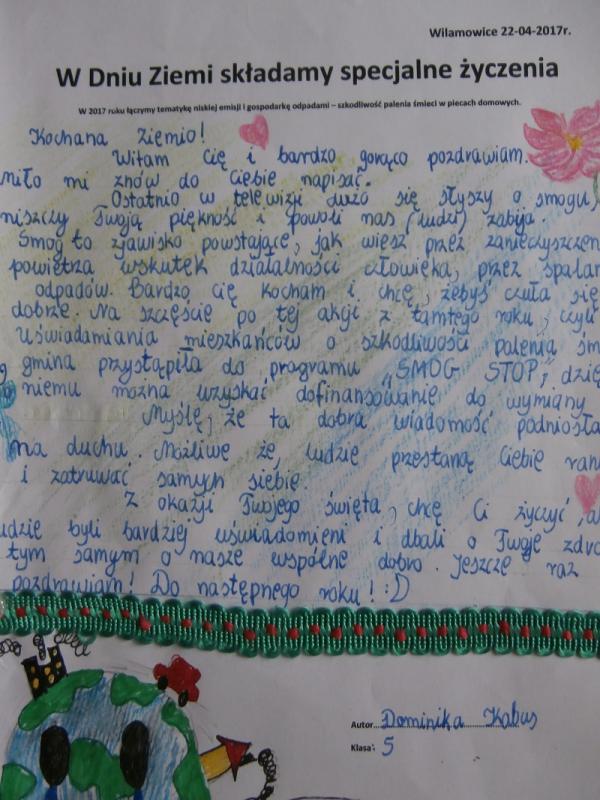 Wilamowice 22-04-2017r.
W Dniu Ziemi składamy specjalne życzenia
W 2017 roku łączymy tematykę niskiej emisji i gospodarkę odpadami – szkodliwość palenia śmieci w piecach domowych.
Kochana Ziemio!
Witam Cię i bardzo gorąco pozdrawiam.
miło mi znów do Ciebie napisać.
Ostatnio w telewizji dużo się słyszy o smogu,
niszczy Twoją piękność i powoli nas (ludzi) zabija.
Smog to zjawisko powstające, jak wiesz przez zanieczyszczen
powietrza wskutek działalności człowieka, przez spalan
odpadów. Bardzo cię kocham i chcę, żebyś czuła się
dobrze. Na szczęście po tej akcji z tamtego roku, czyli
Uświadamiania mieszkańców o szkodliwości palenia śm
gmina przystąpiła do programu „SMOG STOP", dzię
niemu można uzyskać dofinansowanie do wymiany
Myślę, że ta dobra wiadomość podniosła
na duchu. Możliwe że, ludzie przestaną Ciebie ran
i zatruwać samych siebie
Z okazji Twojego święta, chcę Ci życzyć, a
udzie byli bardziej uświadomieni i dbali o Twoje zdro
tym samym o nasze wspólne dobro. Jeszcze raz
pozdrawiam! Do następnego roku! :D
Autor Dominika Kabus
Klasa: 5